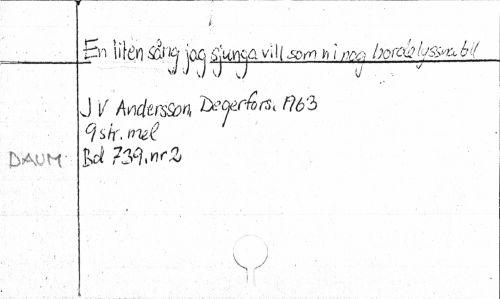 En liten sång jag sjunga vill som ni nog borde lyssna till
J V Andersson, Degerfors. 1963
9 str. mel
DAUM Bd 739. nr 2